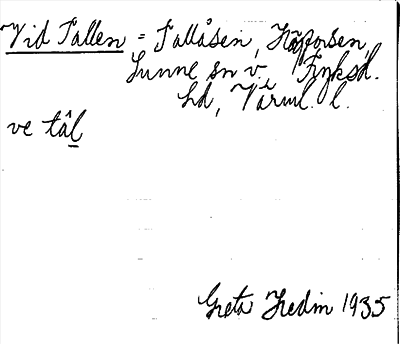 Vid Tallen = Tallåsen,
Sunne sn v., Fryksd.
hd, Värml. l.
ve tâl
Greta Hedin 1935